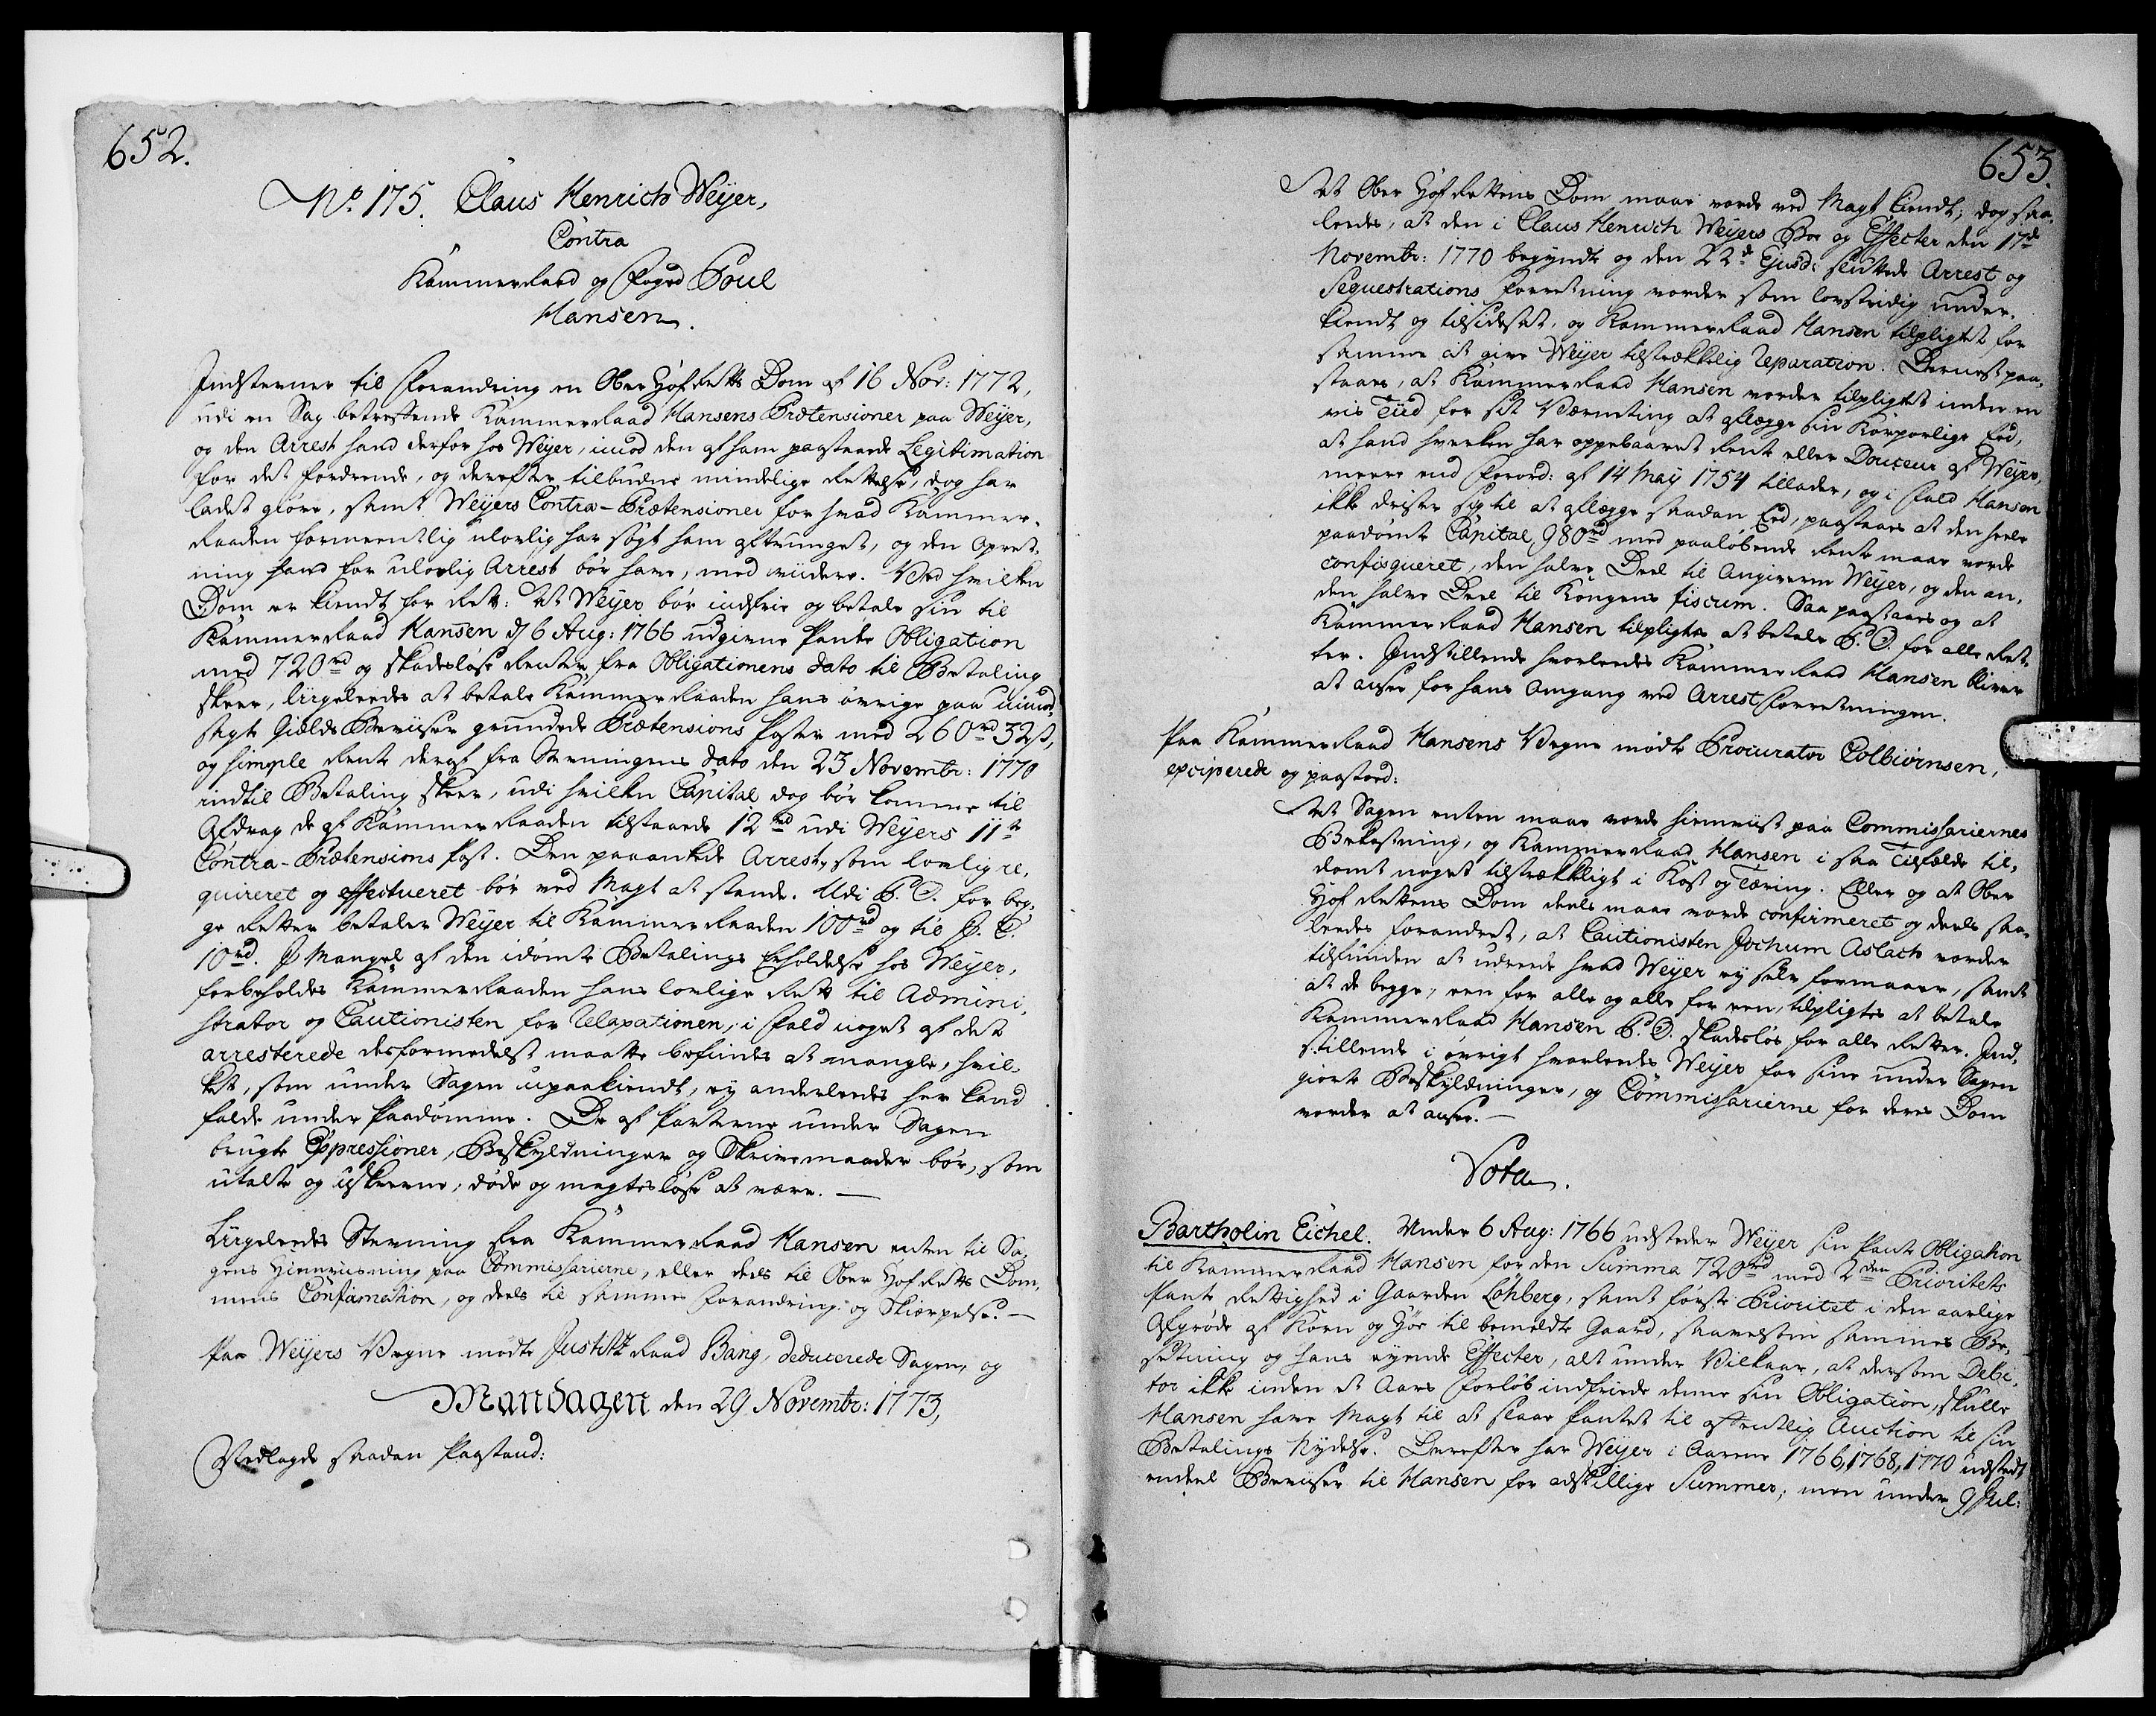 652.
No. 175. Claus Henrich Weyer,
Contra
Kammerraad og Foged Poul
Hansen.
Indsterner til Forandring en Ober Hof Retts Dom af 16 Nov: 1772,
udi en Sag betreffende Kammer Raad Hansens Prætensioner paa Weyer,
og den Arrest hand derfor hos Weyer, imod den af ham paastaaede Legitimation
for det fordrende, og derefter tilbudne mindelige Rettelse, dog har
ladet giöre, samt Weyers Contra-Prætensioner for hvad Kammer-
Raaden formeentlig ulovlig har sögt ham aftvunget, og den Opret-
ning hand for ulovlig Arrest bör have, med viidere. Ved hvilken
Dom er kiendt for Rett: At Weyer bör indfrie og betale sin til
Kammer Raad Hansen d. 6 Aug: 1766 udgivne Pante Obligation
med 720 rd og skadeslöse Renter fra Obligationens dato til Betaling
skeer, ligeleedes at betale Kammer Raaden hans övrige paa uimod-
sagte Gields Beviiser grundede Prætensions Poster med 260 rd 32 s,
og simple Rente deraf fra Stevningens dato den 23 Novembr: 1770
indtil Betaling skeer, udi hvilken Capital dog bör komme til
Afdrag de af Kammer Raaden tilstaaede 12 rd udi Weyers 11te
Contra-Prætensions Post. Den paaankede Arrest, som lovlig re-
quireret og effectueret bör ved Magt at stande. Udi P. O. for beg-
ge Retter betaler Weyer til Kammer Raaden 100 rd og til J. C.
10 rd. I Mangel af den idömte Betalings Erholdelse hos Weyer,
forbeholdes Kammer Raaden hans lovlige Rett til Admini-
strator og Cautionisten for Relaxationen, i Fald noget af det
arresterede desformedelst maatte befindes at mangle, hvil-
ket, som under Sagen upaakiendt, ey anderleedes her kand
falde under Paadömme. De af Parterne under Sagen
brugte Expressioner, Beskyldninger og Skrivemaader bör, som
utalte og uskrevne, döde og magteslöse at være. —
Ligeleedes Stevning fra Kammer Raad Hansen enten til Sa-
gens Hiemviisning paa Commissarierne, eller deels til Ober Hof Retts Dom-
mens Confirmation, og deels til sammes Forandring og Skiærpelse. —
Paa Weyers Vegne mödte Justitz Raad Bang, deducerede Sagen, og
Mandagen den 29 Novembr: 1773,
Vedlagde saadan Paastand:
653.
At Ober Hof Rettens Dom maae vorde ved Magt kiendt; dog saa-
leedes, at den i Claus Henrich Weyers Boe og Effecter den 17de
Novembr: 1770 begyndte og den 22de Ejusd: sluttede Arrest og
Sequestrations Forretning vorder som lovstridig under-
kiendt og tilsidesat, og Kammer Raad Hansen tilpligtet for
samme at give Weyer tilstrækkelig Reparation. Dernæst paa-
staaes, at Kammer Raad Hansen vorder tilpligtet inden en
vis Tiid for sit Værneting at aflægge sin Korporlige Eed,
at hand hverken har oppebaaret Rente eller Douceur af Weyer,
meere end Forord: af 14 May 1754 tillader, og i Fald Hansen
ikke drister sig til at aflægge saadan Eed, paastaaes at den heele
paadömte Capital 980 rd med paalöbende Rente maae vorde
confisqueret, den halve Deel til Angiveren Weyer, og den an-
den halve Deel til Kongens fiscum. Saa paastaaes og at
Kammer Raad Hansen tilpligtes at betale P. O. for alle Ret-
ter. Indstillende hvorleedes Kammer Raad Hansen bliver
at ansee for hans Omgang ved Arrest Forretningen.
Paa Kammer Raad Hansens Vegne mödte Procurator Colbiörnsen,
exciperede og paastoed:
At Sagen enten maae vorde hiemviist paa Commissariernes
Bekostning, og Kammer Raad Hansen i saa Tilfælde til-
dömt noget tilstrækkeligt i Kost og Tæring. Eller og at Ober
Hof Rettens Dom deels maae vorde confirmeret og deels saa-
leedes forandret, at Cautionisten Jochum Aslach vorder
tilfunden at udreede hvad Weyer ey selv formaaer, samt
at de begge, een for alle og alle for een, tilpligtes at betale
Kammer Raad Hansen P. O. skadeslös for alle Retter. Ind-
stillende i övrigt hvorleedes Weyer for sine under Sagen
giorte Beskyldninger, og Commissarierne for deres Dom
vorder at ansee. —
Vota.
Bartholin Eichel. Under 6 Aug: 1766 udsteder Weyer sin Pante Obligation
til Kammer Raad Hansen for den Summa 720 rd med 2den Prioritets
Pante Rettighed i Gaarden Löhberg, samt förste Prioritet i den aarlige
Afgröde af Korn og Höe til bemeldte Gaard, saavelsom sammes Be-
sætning og hans eyende Effecter, alt under Vilkaar, at dersom Debi-
tor ikke inden et Aars Forlöb indfriede denne sin Obligation, skulle
Hansen have Magt til at slaae Pantet til offentlig Auction til sin
Betalings Nydelse. Derefter har Weyer i Aarene 1766, 1768, 1770 udstedt
endeel Beviiser til Hansen for adskillige Summer; men under 9 Jul: